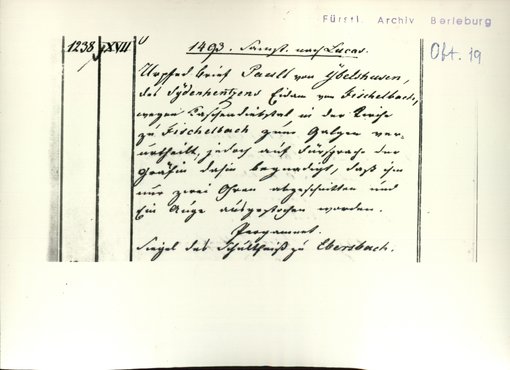 Fürstl. Archiv Berleburg
1238 XVII
1493. Samst. nach Lucas.
Okt. 19
Urpfedbrief Paull von Ybelshusen,
des Sydenhentzens Eidam von Fischelbach,
wegen Taschendiebstal in der Kirche
zu Fischelbach zum Galgen ver-
urtheilt, jedoch auf Fürsprache der
Gräfin dahin begnadigt, daß ihm
nur zwei Ohren abgeschnitten und
Ein Auge ausgestochen worden.
Pergament.
Siegel des Schultheiß zu Ebersbach.